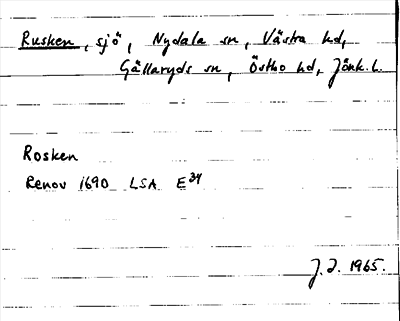 Rusken, sjö, Nydala sn, Västra hd,
Gällaryds sn, Östbo hd, Jönk. l.
Rosken
Renov 1690 LSA E³⁴
J. J. 1965.